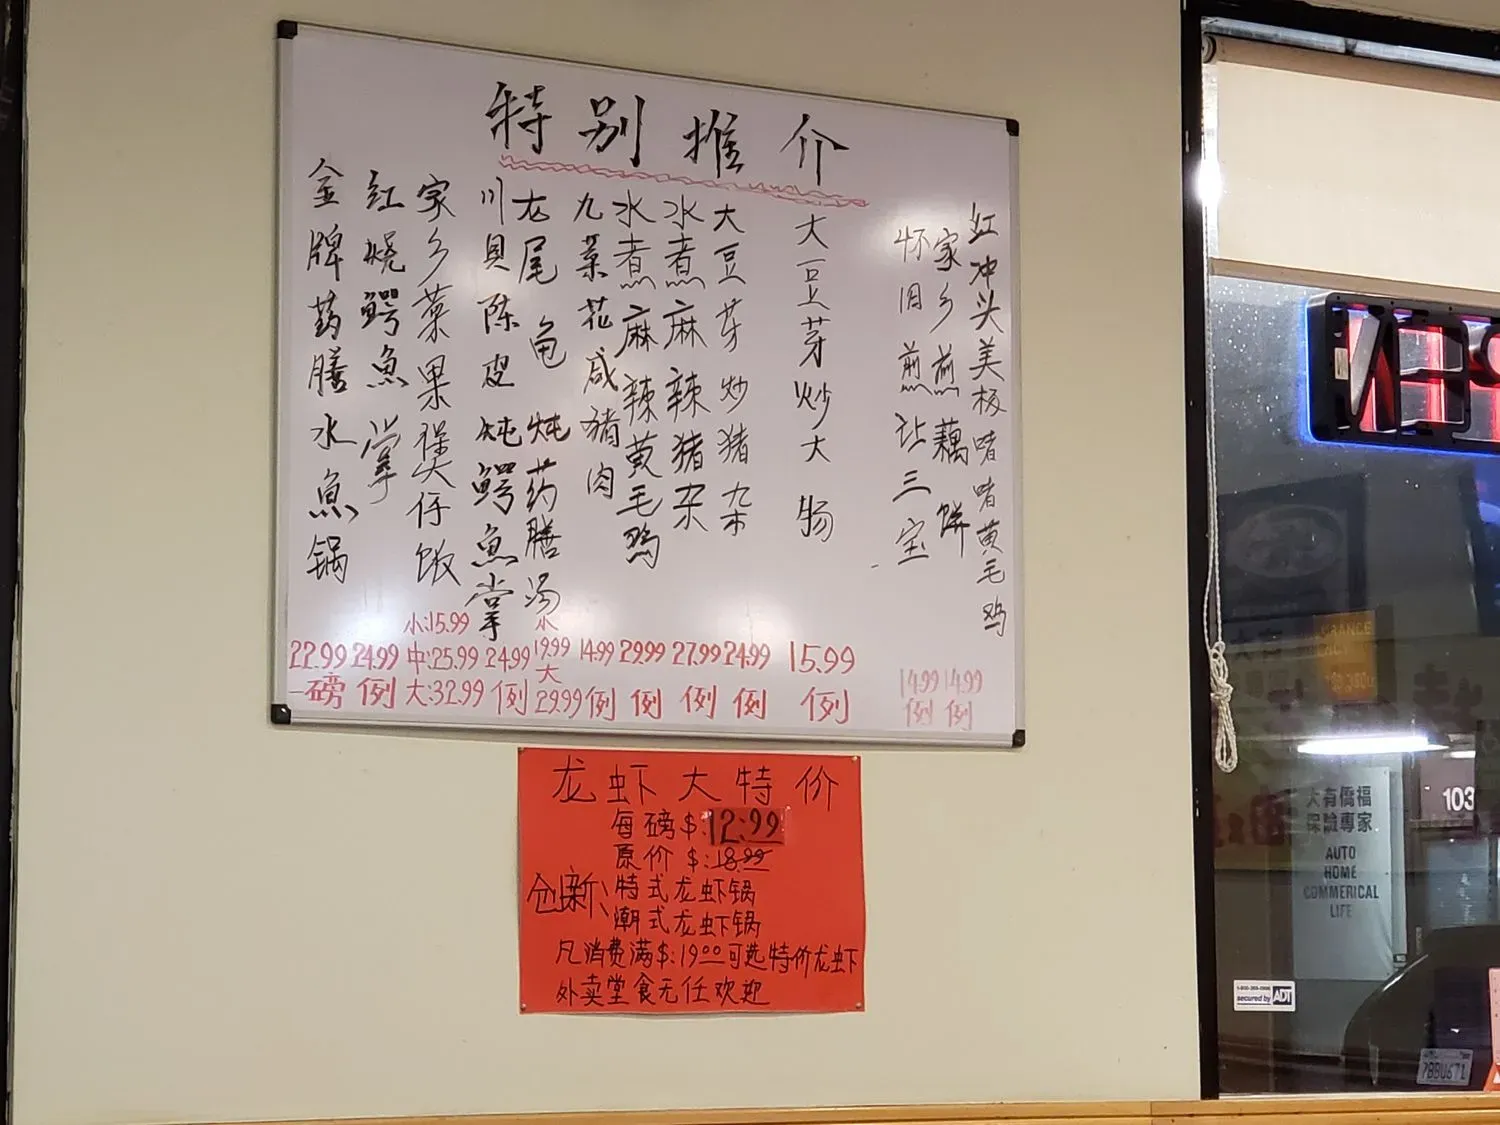 特别推介
金牌药膳水魚锅
22.99
一磅
红烧鳄魚掌
24.99
例
家乡菜果煲大仔饭
小:15.99
中:25.99
大:32.99
川贝陈皮炖鳄魚掌
24.99
例
龙尾龟炖药膳汤
小
19.99
大
29.99
九菜花咸猪肉
14.99
例
水煮麻辣黄毛鸡
29.99
例
水煮麻辣猪杂
27.99
例
大豆芽炒猪杂
24.99
例
大豆芽炒大肠
15.99
例
怀旧煎让三宝
14.99
例
家乡煎藕饼
14.99
例
红冲头美极啫啫黄毛鸡
龙虾大特价
每磅$:12.99
原价$:18.99
创新、特式龙虾锅
潮式龙虾锅
凡消费满$:19.00可选特价龙虾
外卖堂食无任欢迎
OPEN
大有僑福
保險專家
AUTO
HOME
COMMERICAL
LIFE
103
secured by ADT
7BBU671